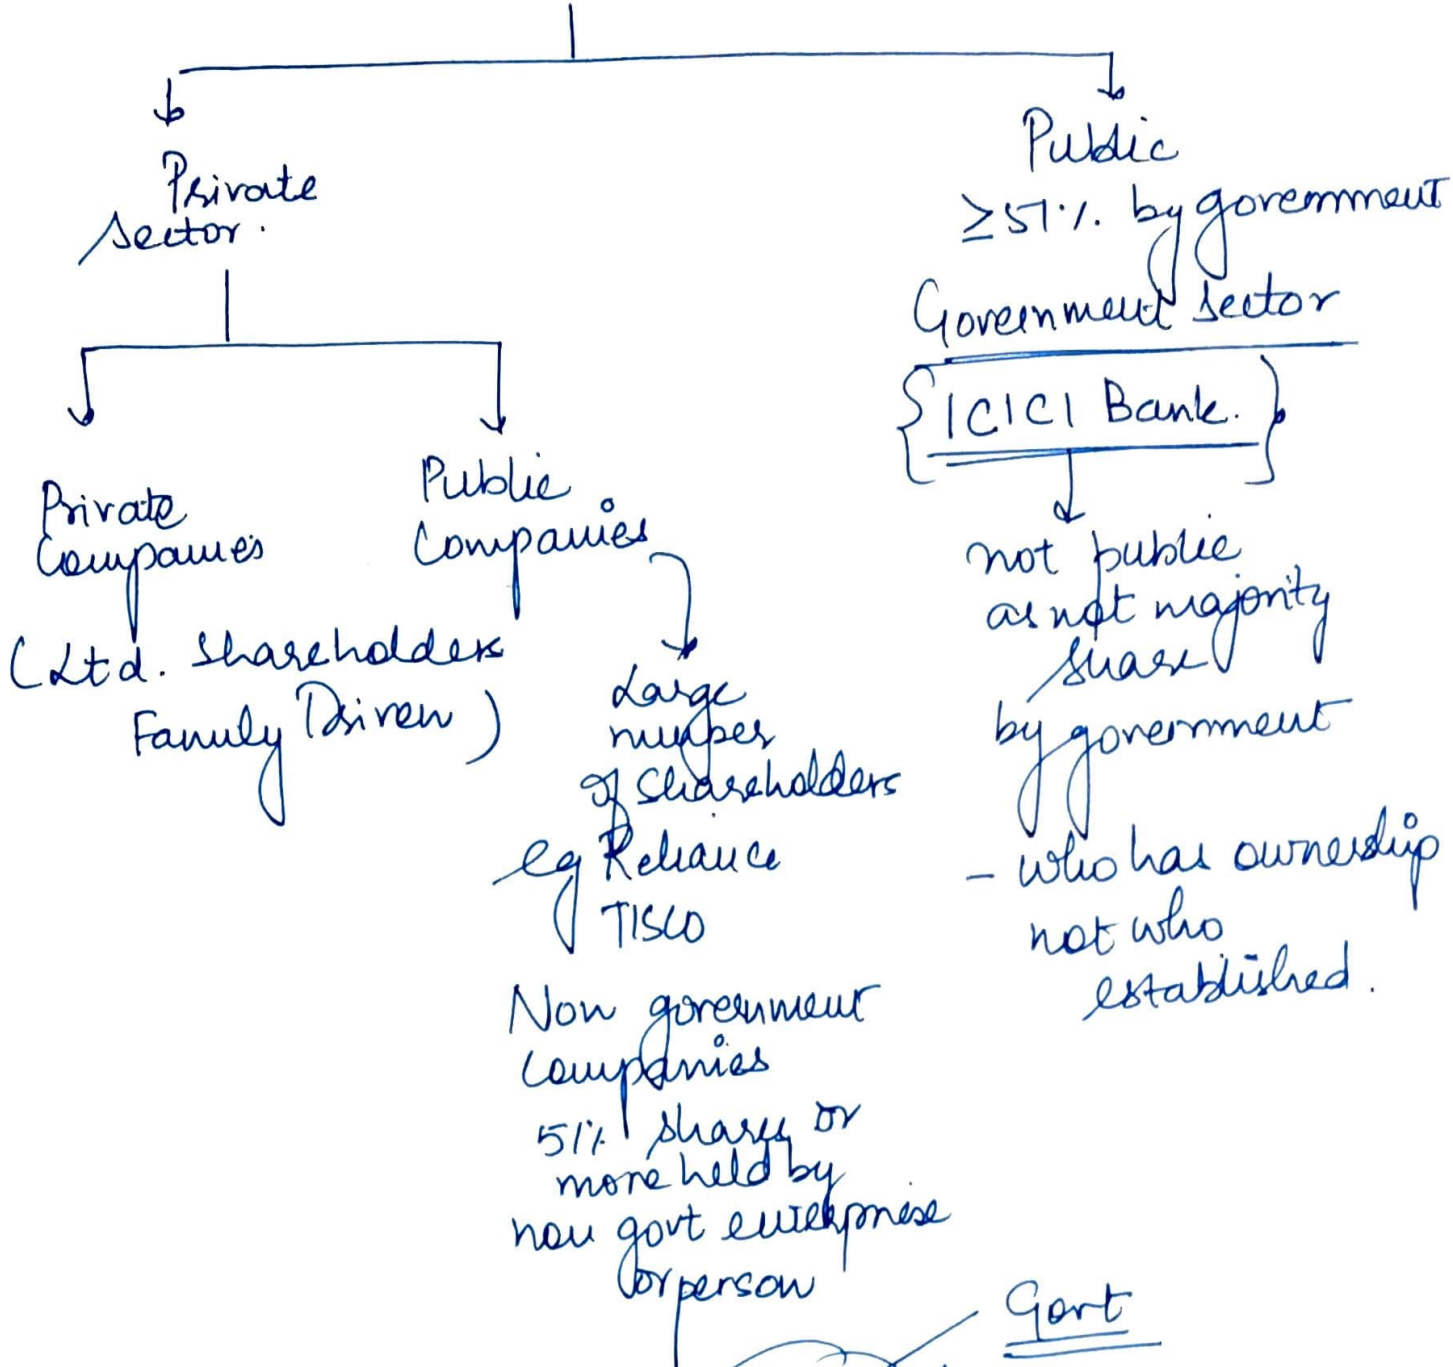 Private
sector.
Private
Companies
(Ltd. Shareholders
Family Driven)
Public
Companies
Large
number
of Shareholders
eg Reliance
TISCO
Non government
Companies
51% shares or
more held by
non govt enterprise
or person
Public
≥51% by government
Government sector
{ICICI Bank.}
not public
as not majority
share
by government
- who has ownership
not who
established.
Govt